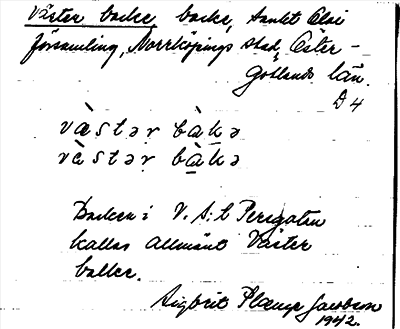 Väster backe, backe, Sankt Olai
församling, Norrköpings stad, Öster-
Götlands län.
D 4
västər bàkə
västər bàkə
Backen i V. S:t Persgatan
kallas allmänt Väster
backe.
Sigbrit Plænge Jacobson
1942.